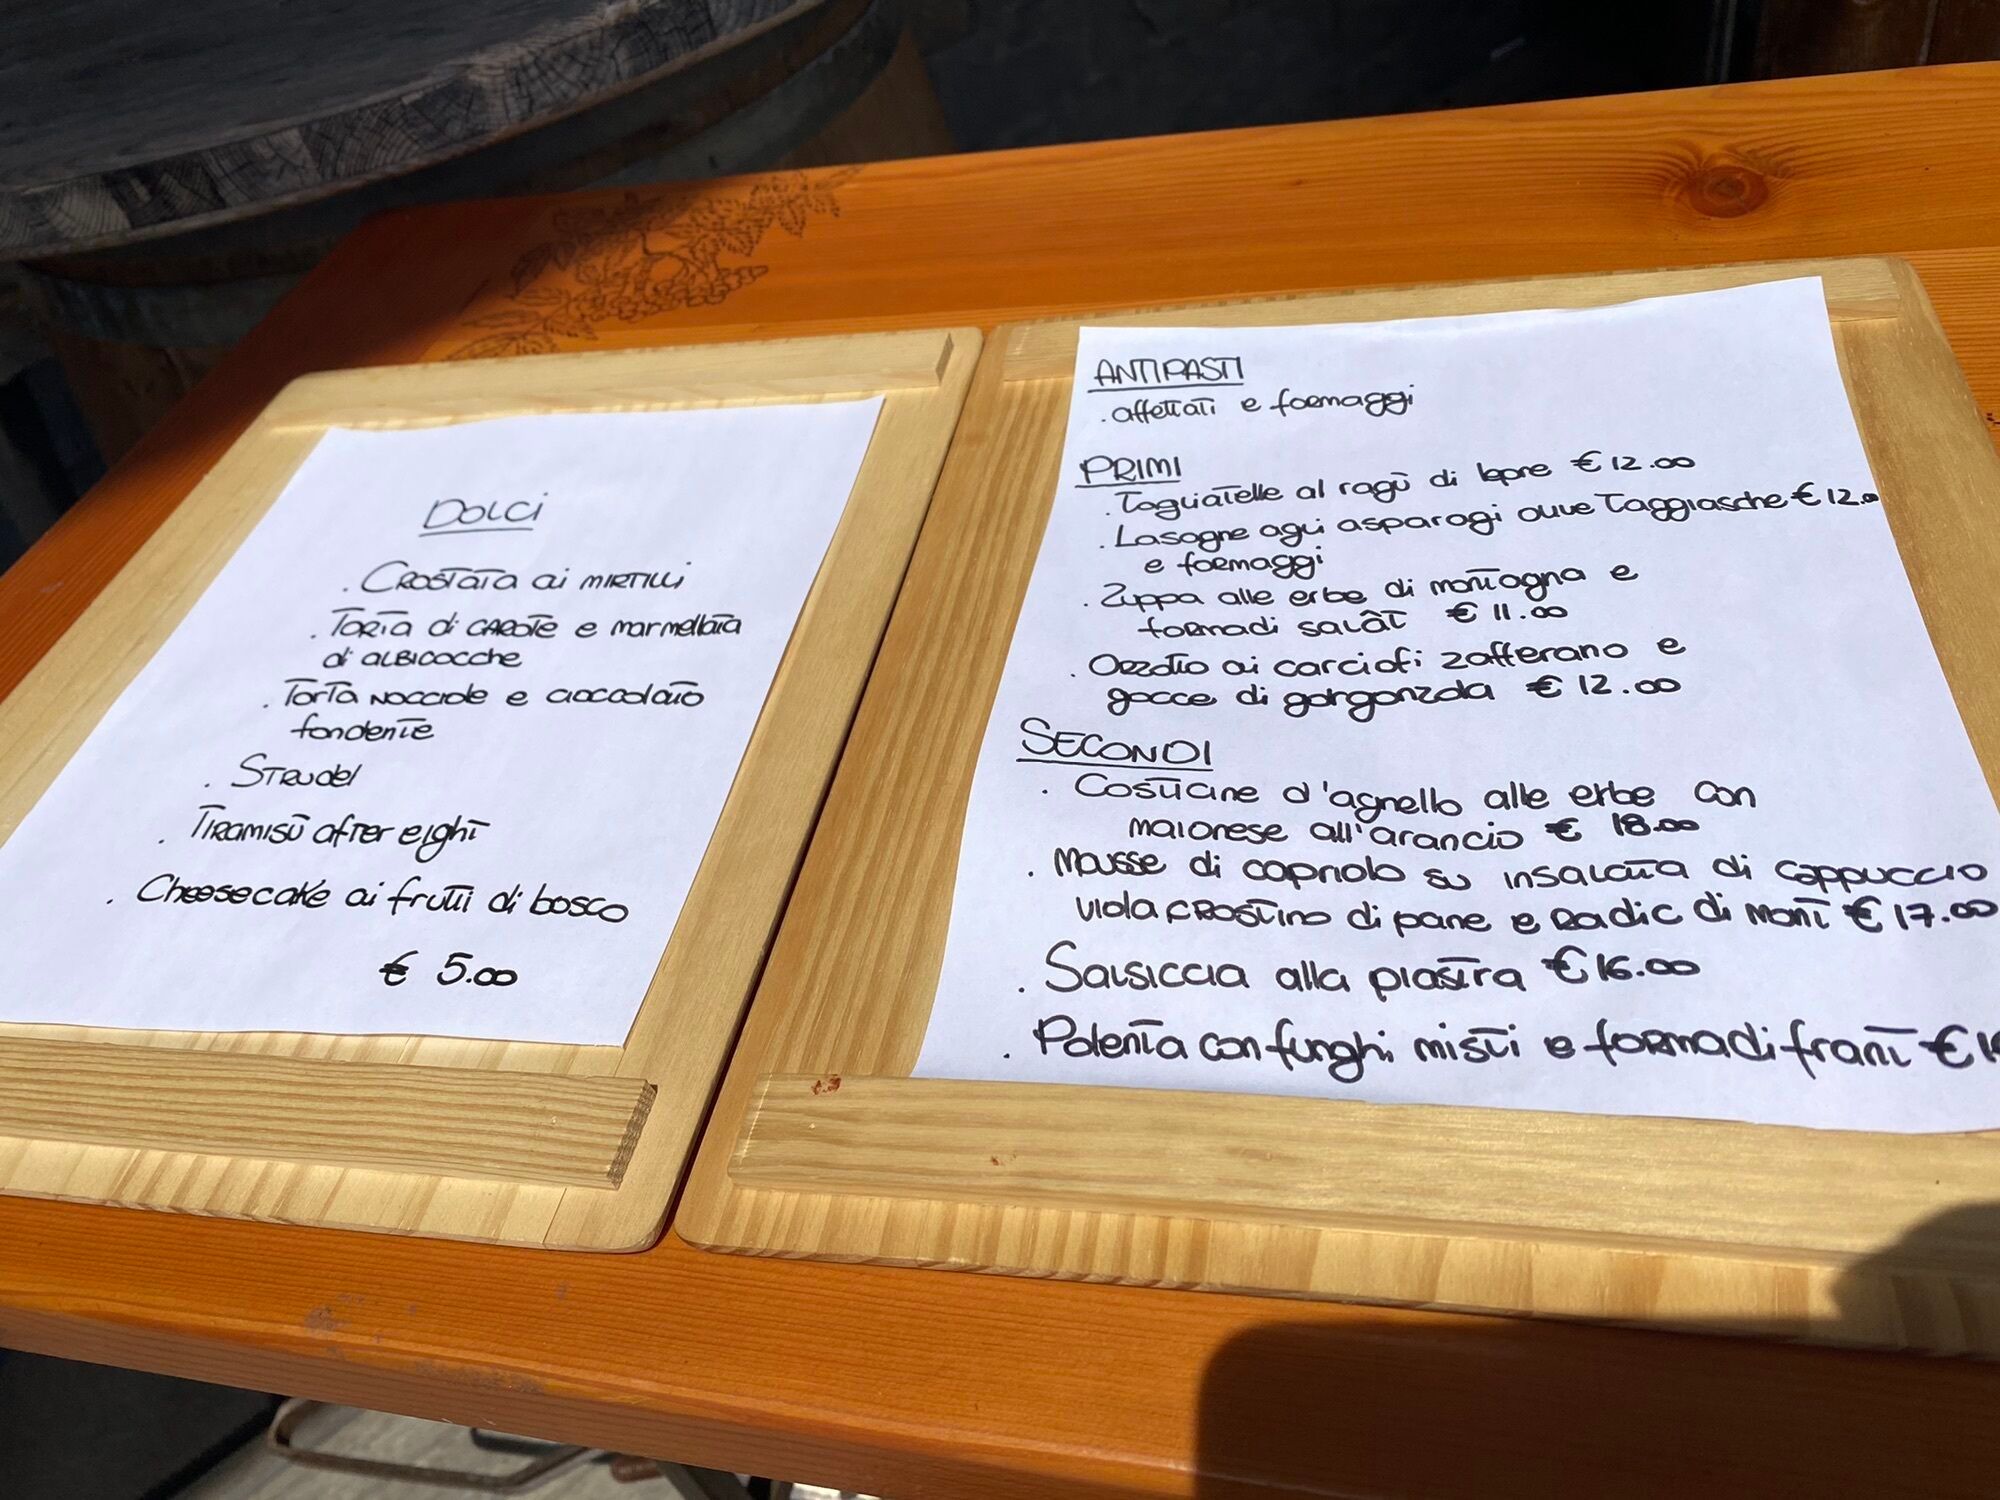 DOLCI
. CROSTATA ai MIRTILLI
. TORTA di CAROTE e marmellata
di ALBICOCCHE
. TORTA NOCCIOLE e cioccolato
fondente
. STRUdel
. TIRAMISÙ after eight
. Cheesecake ai frutti di bosco
€ 5.00
ANTIPASTI
. affettati e formaggi
PRIMI
. Tagliatelle al ragù di lepre € 12.00
. Lasagne agli asparagi olive Taggiasche € 12.00
e formaggi
. Zuppa alle erbe di montagna e
formadi salât € 11.00
. Orzotto ai carciofi zafferano e
gocce di gorgonzola € 12.00
SECONDI
. Costicine d'agnello alle erbe con
maionese all'arancio € 18.00
. Mousse di capriolo su insalata di cappuccio
viola crostino di pane e Radic di Mont € 17.00
. Salsiccia alla piastra € 16.00
. Polenta con funghi misti e formadi frant €